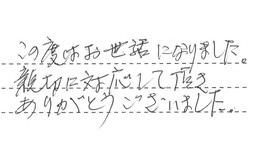 この度はお世話になりました。
親切に対応して頂き
ありがとうございました。